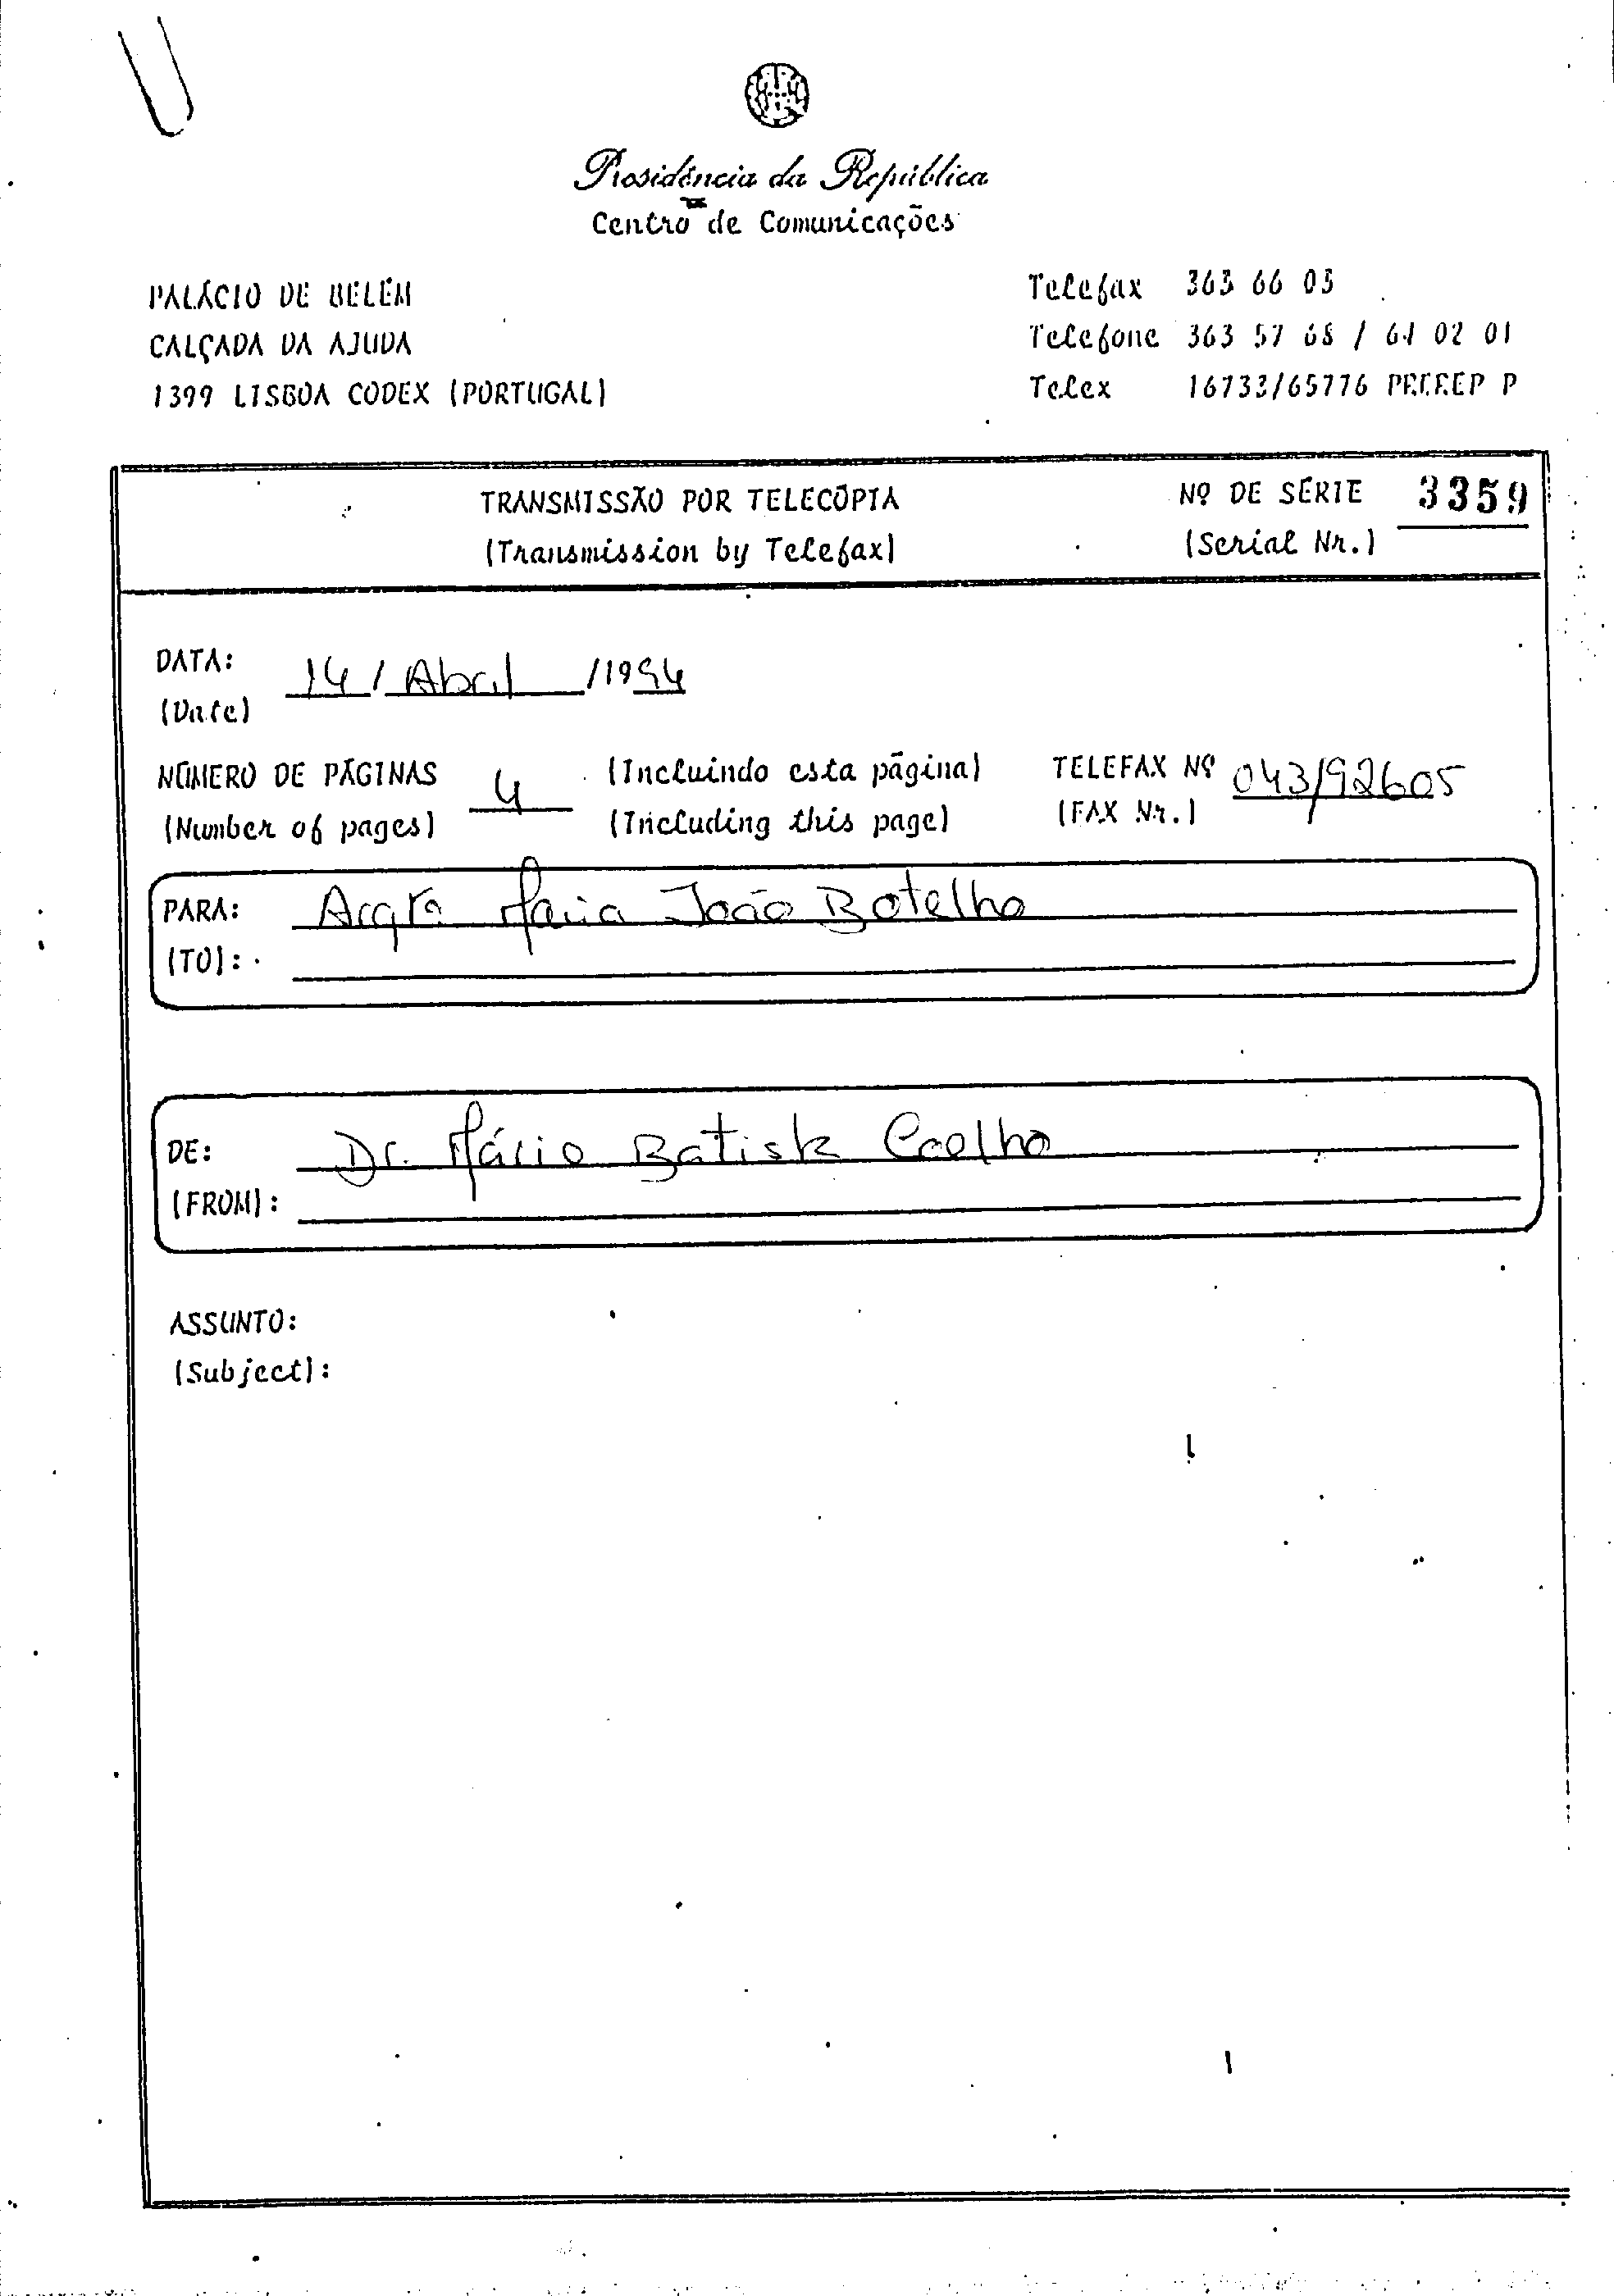 Presidência da República
Centro de Comunicações
PALÁCIO DE BELÉM
CALÇADA DA AJUDA
1399 LISBOA CODEX (PORTUGAL)
Telefax 363 66 03
Telefone 363 57 68 / 61 02 01
Telex 16733/65776 P
TRANSMISSÃO POR TELECÓPIA
(Transmission by Telefax)
Nº DE SÉRIE 3359
(Serial Nr.)
DATA: 14 / Abril /1994
(Date)
NÚMERO DE PÁGINAS 4 (Incluindo esta página) TELEFAX Nº 043/92605
(Number of pages) (Including this page) (FAX Nr.)
PARA: Arqta Maria João Botelho
(TO):
DE: Dr. Mário Batista Coelho
(FROM):
ASSUNTO:
(Subject):